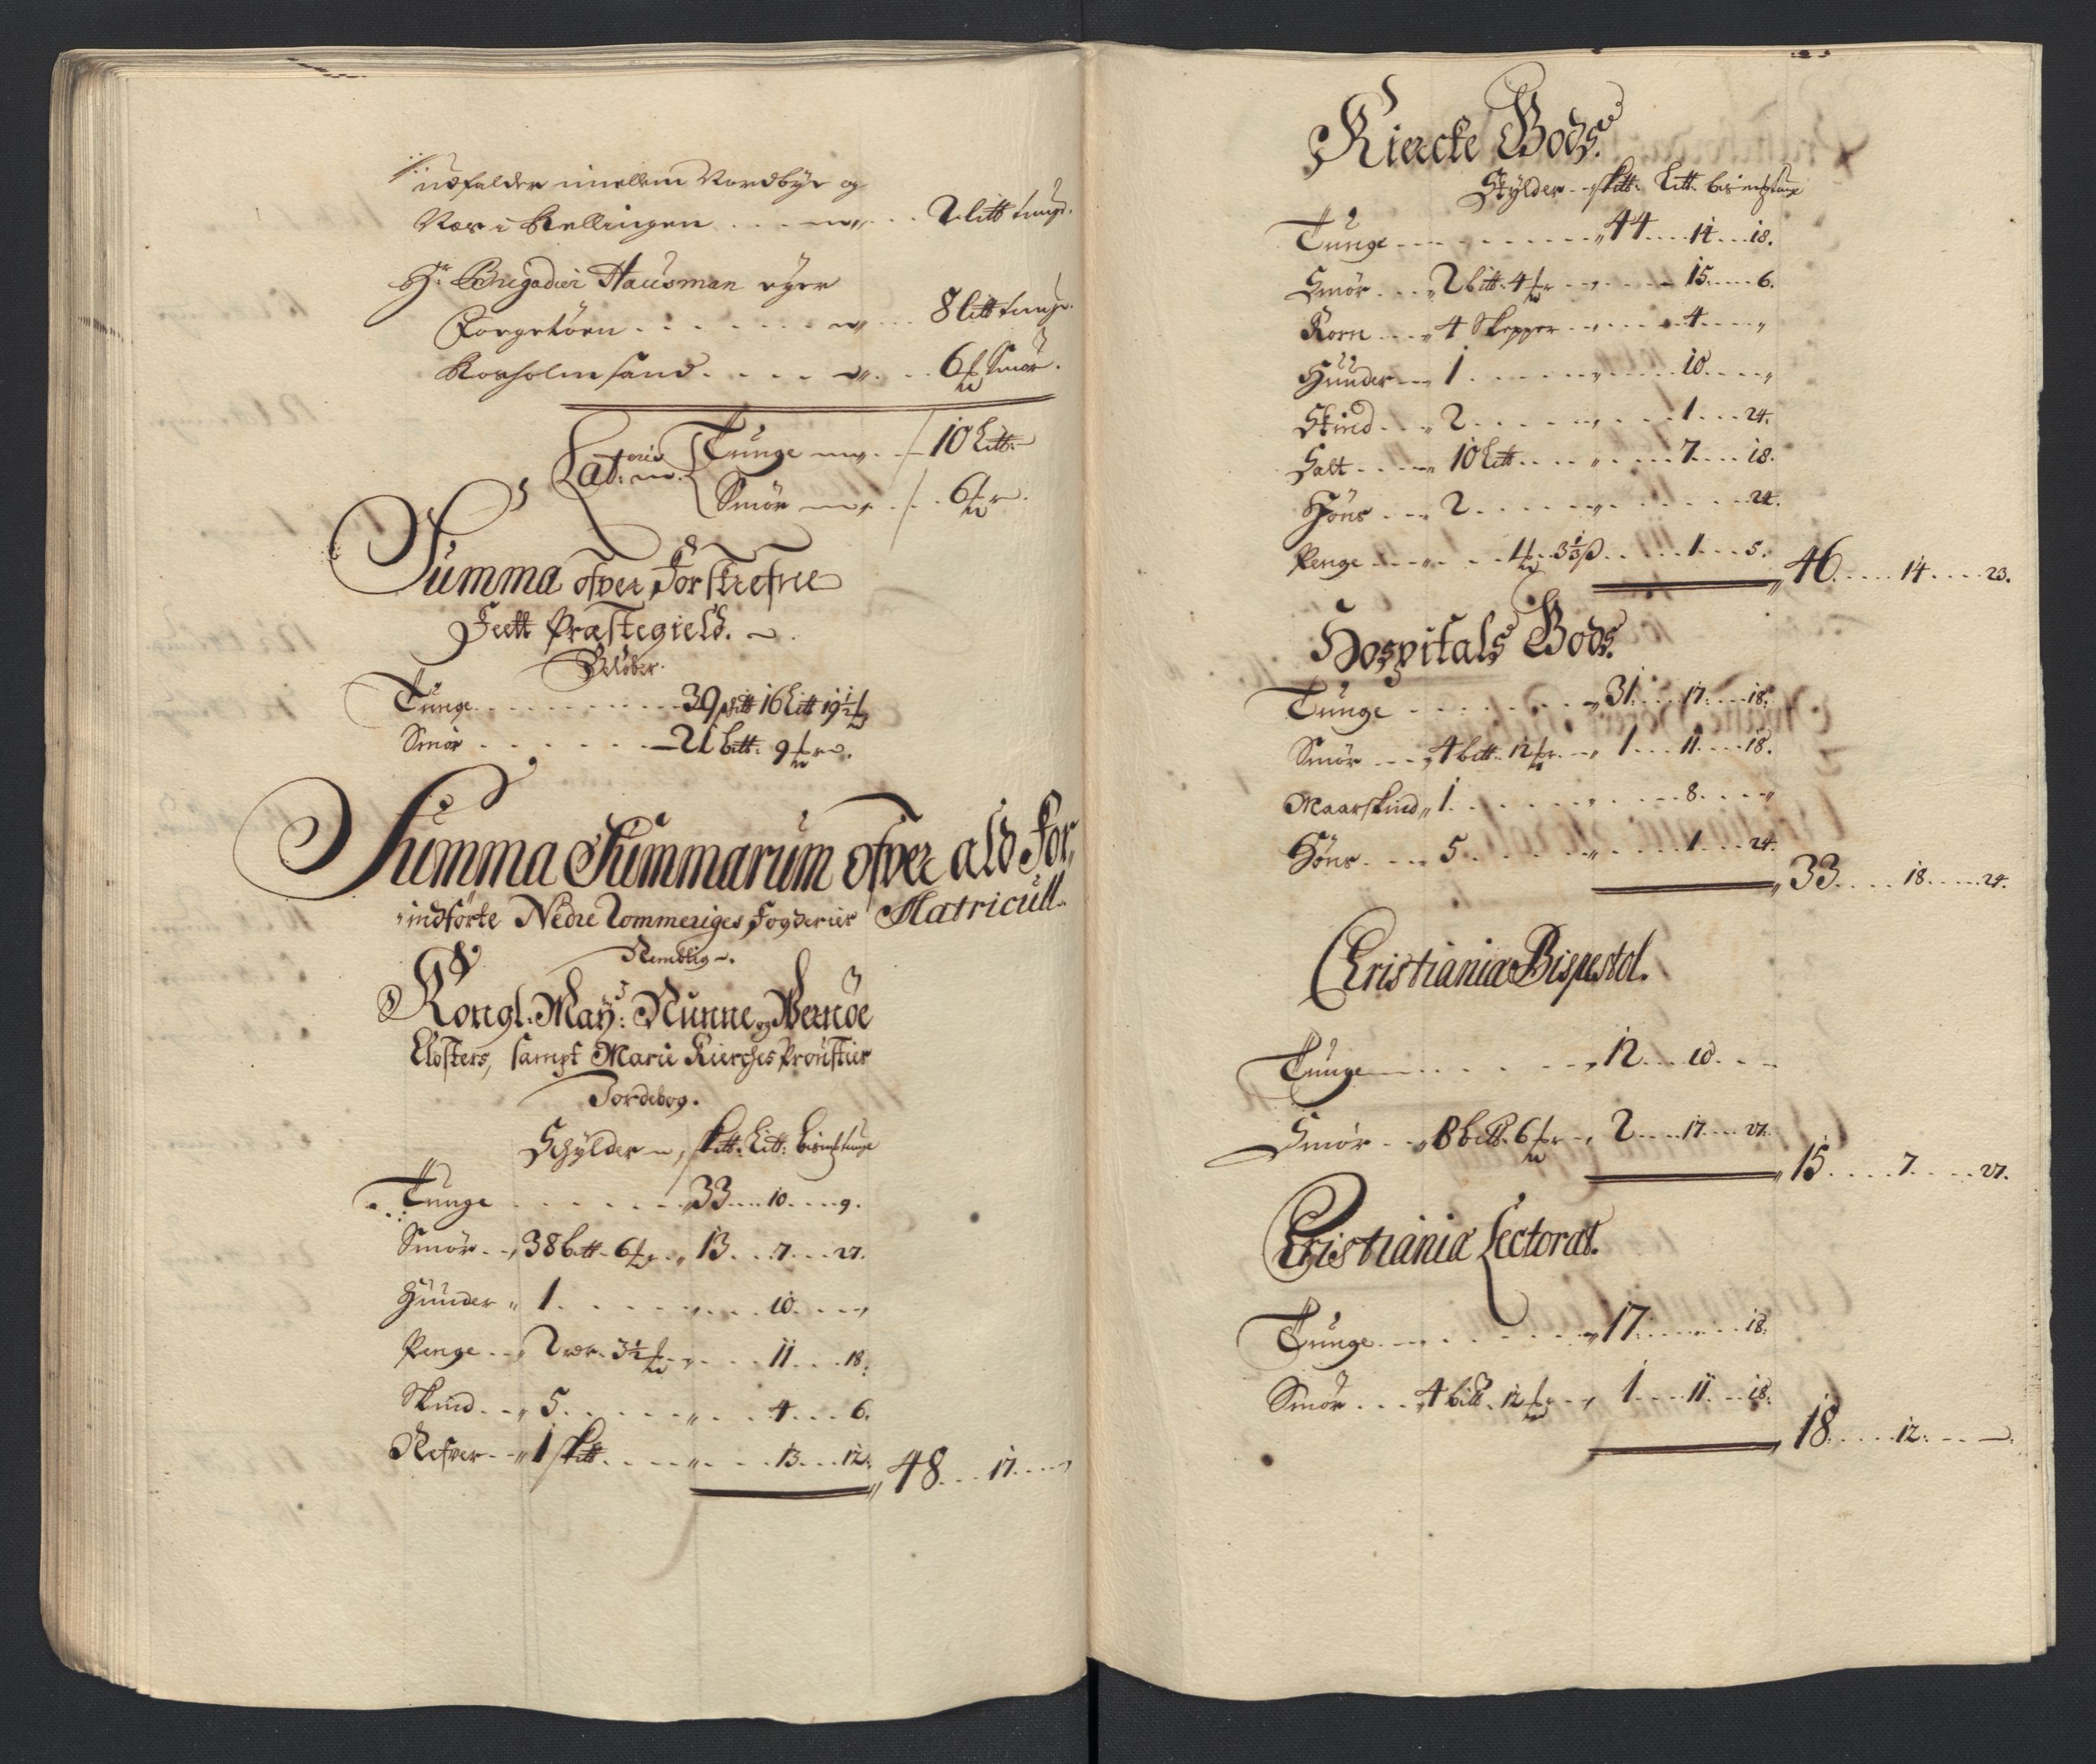 udfalden imellem Nordbye og
Næs i Kellingen . . . . . 2 Litt tunge.
Hr. Brigadier Hausman eyer
. . . . . . . 8 Litt tunge.
Korsholm sand . . . . . . 6 ℔ Smör.
Lat: Tunge . . 10 Litt:
Smör . . 6 ℔r
Summa ofver Forskrefne
Feett Præstegield.
Beløber.
Tunge . . . . . . . . . . 39 skitt 16 Litt 19½ ℔
Smör . . . . . . 21 bitt: 9 ℔r.
Summa Summarum ofver ald For,
indförte Nedre Rommeriges Fogderies Matricull
Nemblig.
Kongl: May: Nunne og Wernöe
Closters, sampt Marie Kierches Proustier
Jordebog.
Schylder skitt: Litt: bismhtunge
Tunge . . . . . . 33 . . . 10 . . . . 9.
Smör . . 38 bitt. 6 ℔r . . 13 . . . 7 . . . 27.
Hunder 1 . . . . . . . . 10 . . .
Penge . . 2 ör. 3½ ℔ . . . . 11 . . . 18.
Skind . . 5 . . . . . . . . 4 . . . 6.
Refver . . 1 skitt . . . . . . . 13 . . . 12. 48 . . . 17 . . .
Kiercke Gods.
Skylder . . skitt: Litt: bismhtunge
Tunge . . . . . . . . . 44 . . . . 14 . . . 18.
Smör . . . 2 bitt. 4 ℔r . . . . . 15 . . . . 6.
Korn . . . 4 Skepper . . . . . . 4 . . . .
Hunder . . 1 . . . . . . . . . 10 . . . .
Skind . . . 2 . . . . . . . . . 1 . . . 24.
Salt . . . . 10 Litt . . . . . . . 7 . . . . 18.
Höns . . . 2 . . . . . . . . . . . 24.
Penge . . . . . 1 ℔ 3⅓ ß . . . . . 1 . . . 5. 46 . . . . 14 . . . . 23.
Hospitals Gods.
Tunge . . . . . . . . 31 . . . 17 . . . 18.
Smör . . . 4 bitt. 12 ℔r . . 1 . . . 11 . . . 18.
Maarskind 1 . . . . . . . . . 8 . . .
Höns . . . 5 . . . . . . . . 1 . . . 24. 33 . . . . 18 . . . . 24.
Cristiania Bispestol.
Tunge . . . . . . . 12 . . . 10 . . .
Smör . . 8 bitt. 6 ℔r . . 2 . . . . 17 . . . 27. 15 . . . . 7 . . . . 27.
Cristiania Lectorat.
Tunge . . . . . . . . 17 . . . . . . 18.
Smör . . . 4 bitt. 12 ℔r . . 1 . . . 11 . . . 18. 18 . . . . 12 . . .